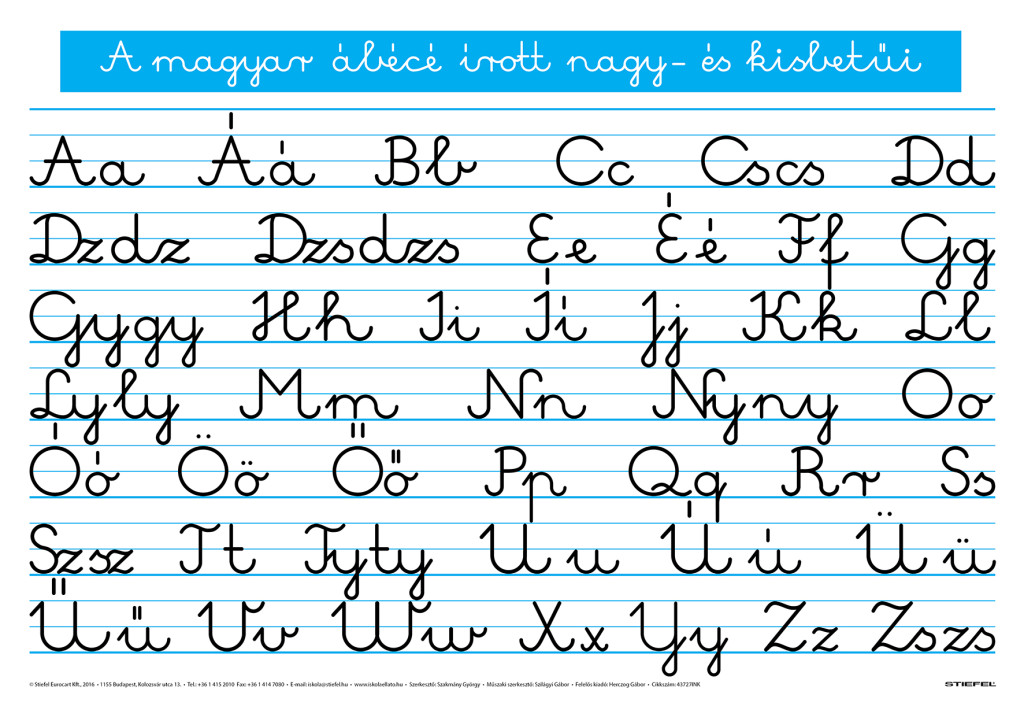 A magyar ábécé írott nagy- és kisbetűi
Aa Áá Bb Cc Cscs Dd
Dzdz Dzsdzs Ee Éé Ff Gg
Gygy Hh Ii Íí Jj Kk Ll
Lyly Mm Nn Nyny Oo
Óó Öö Őő Pp Qq Rr Ss
Szsz Tt Tyty Uu Úú Üü
Űű Vv Ww Xx Yy Zz Zszs
© Stiefel Eurocart Kft., 2016 • 1155 Budapest, Kolozsvár utca 13. • Tel.: +36 1 415 2010 Fax: +36 1 414 7030 • E-mail: iskola@stiefel.hu • www.iskolaellato.hu • Szerkesztő: Szakmány György • Műszaki szerkesztő: Szilágyi Gábor • Felelős kiadó: Herczog Gábor • Cikkszám: 43727INK STIEFEL